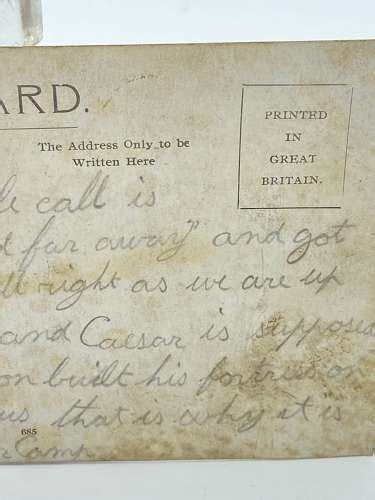 ARD.
The Address Only to be
Written Here
PRINTED
IN
GREAT
BRITAIN.
call is
far away" and got
right as we are up
and Caesar is supposed
on built his fortress on
us that is why it is
685
Camp